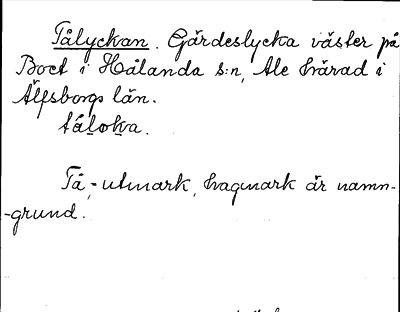 Tålyckan. Gärdeslycka väster på
Boet i Hålanda s:n, Ale härad i
Älfsborgs län.
tåloka.
Tå, - utmark, hagmark är namn-
-grund.